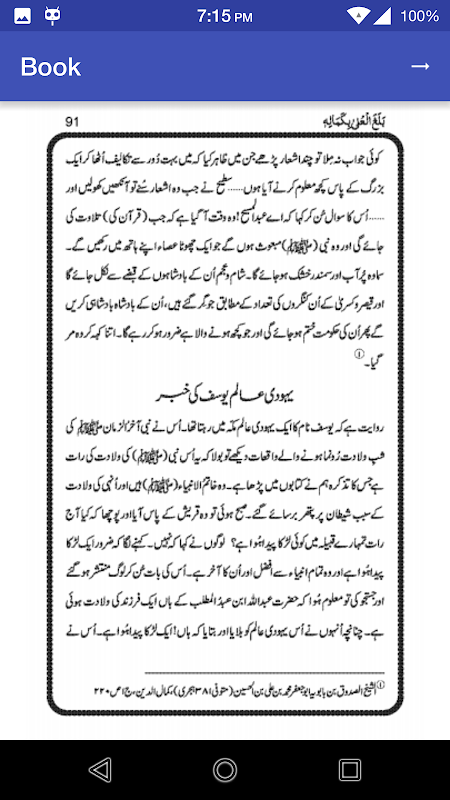 7:15 PM
100%
Book
→
91
بَلَغَ الْعُلٰی بِکَمَالِہٖ
کوئی جواب نہ مِلا تو چند اشعار پڑھے جن میں ظاہر کیا کہ میں بہت دُور سے تکالیف اُٹھا کر ایک
بزرگ کے پاس کچھ معلوم کرنے آیا ہوں......سطیح نے جب وہ اشعار سُنے تو آنکھیں کھولیں اور
......اُس کا سوال سُن کر کہا کہ اے عبدالمسیح! وہ وقت آ گیا ہے کہ جب (قرآن کی) تلاوت کی
جائے گی اور وہ نبی (ﷺ) مبعوث ہوں گے جو ایک چھوٹا عصاء اپنے ہاتھ میں رکھیں گے۔
سماوہ پُر آب اور سمندر خشک ہو جائے گا۔ شام و عجم اُن کے بادشاہوں کے قبضے سے نکل جائے گا
اور قیصر و کسریٰ کے اُن کنگروں کی تعداد کے مطابق جو گر گئے ہیں، اُن کے بادشاہ بادشاہی کریں
گے پھر اُن کی حکومت ختم ہو جائے گی اور جو کچھ ہونے والا ہے ضرور ہو کر رہے گا۔ اتنا کہہ کر وہ مر
گیا۔①
یہودی عالم یوسف کی خبر
روایت ہے کہ یوسف نام کا ایک یہودی عالم مکّہ میں رہتا تھا۔ اُس نے نبی آخرُ الزمان ﷺ کی
شبِ ولادت رُونما ہونے والے واقعات دیکھے تو بولا کہ یہ اُس نبی (ﷺ) کی ولادت کی رات
ہے جس کا تذکرہ ہم نے کتابوں میں پڑھا ہے۔ وہ خاتم الانبیاء (ﷺ) ہیں اور اُنہی کی ولادت
کے سبب شیطان پر پتھر برسائے گئے۔ صبح ہوئی تو وہ قریش کے پاس آیا اور پوچھا کہ کیا آج
رات تمہارے قبیلہ میں کوئی لڑکا پیدا ہُوا ہے؟ لوگوں نے کہا کہ نہیں۔ کہنے لگا کہ ضرور ایک لڑکا
پیدا ہُوا ہے اور وہ تمام انبیاء سے افضل اور اُن کا آخر ہے۔ اُس کی بات سُن کر لوگ منتشر ہو گئے
اور جستجو کی تو معلوم ہُوا کہ حضرت عبداللہ ابن عبدُ المطلب کے ہاں ایک فرزند کی ولادت ہوئی
ہے۔ چنانچہ اُنہوں نے اُس یہودی عالم کو بلایا اور بتایا کہ ہاں! ایک لڑکا پیدا ہُوا ہے۔ اُس نے
① الشیخ الصدوق بن بابویہ ابو جعفر محمد بن علی بن الحسین (متوفی ۳۸۱ ہجری)، کمال الدین، ج۱ ص ۲۲۰